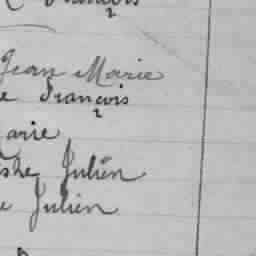 François
Jean Marie
e François
arie
she Julien
e Julien